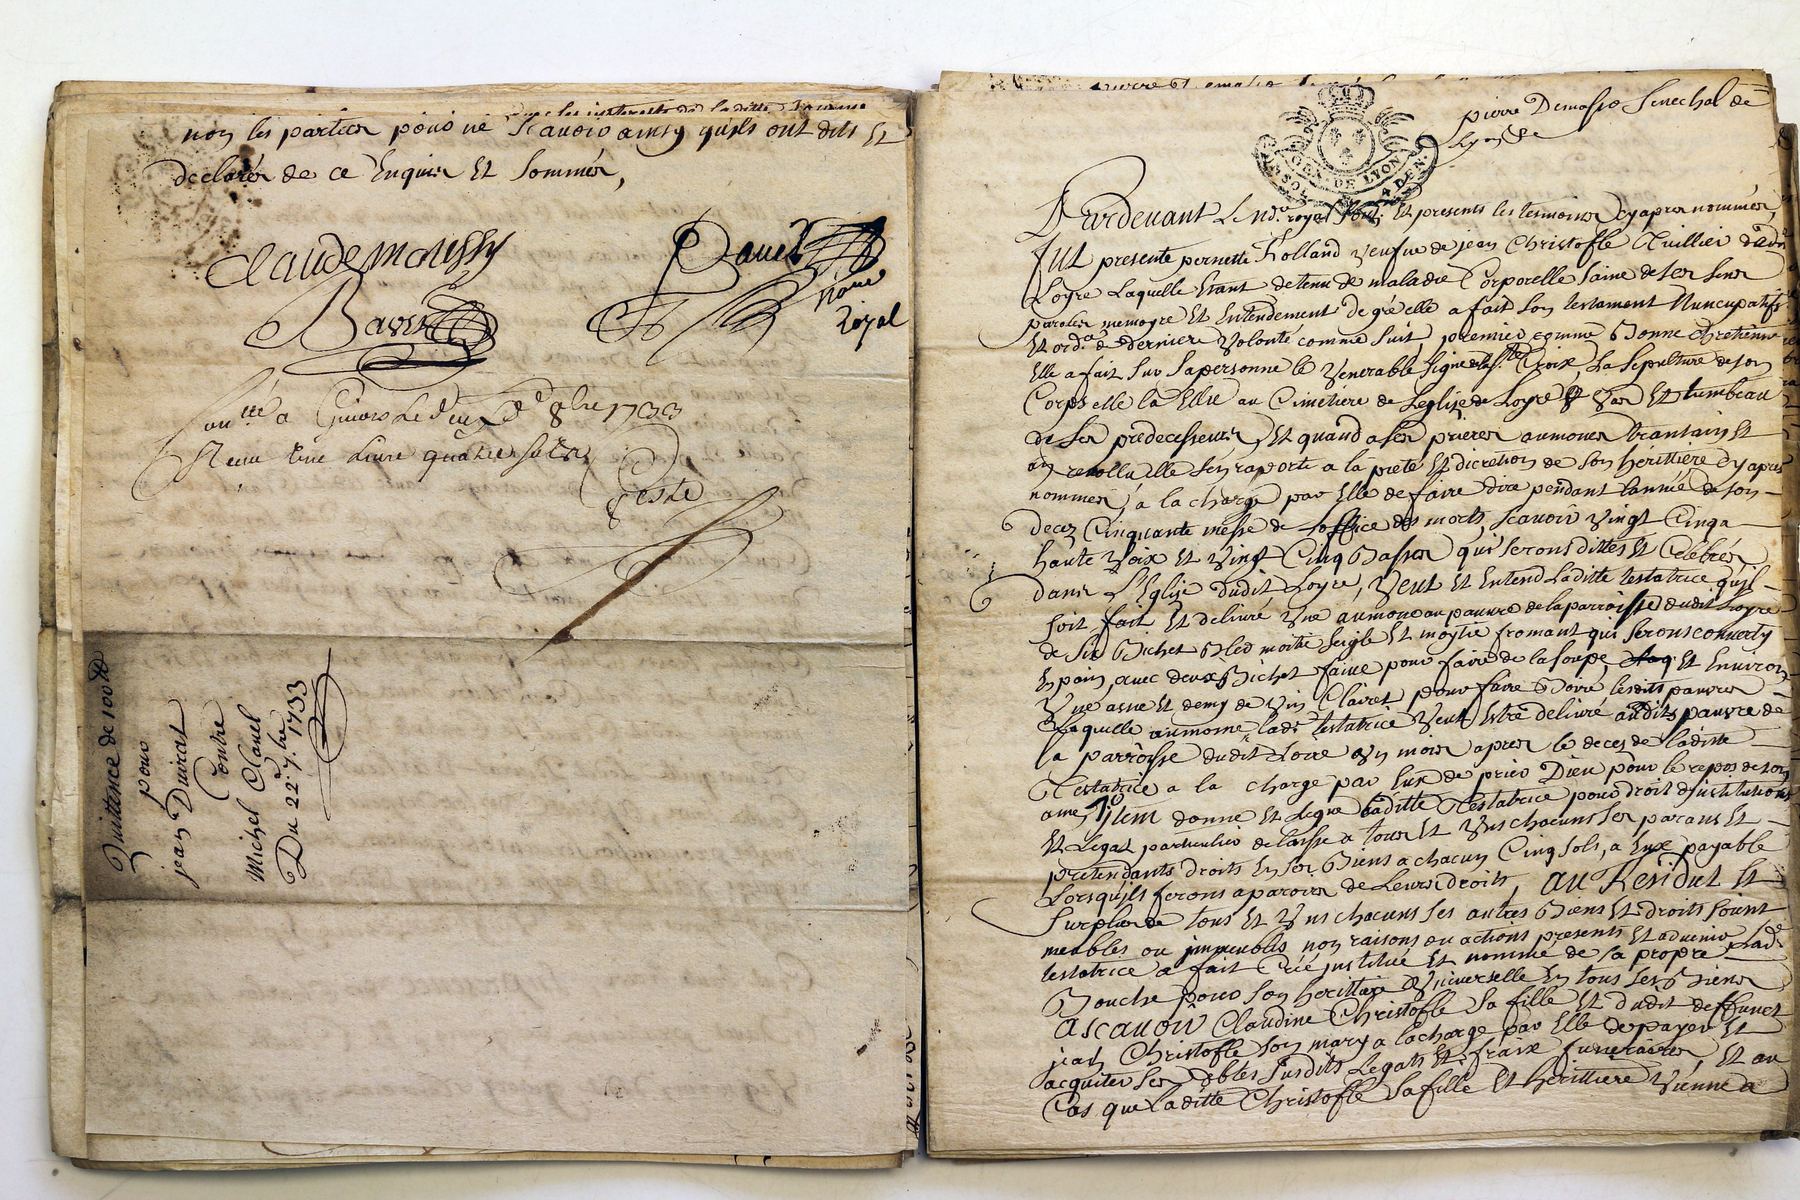 non les parties pour ne Scauoir ainsy quils ont dits Et
declarés de ce Enquis Et Sommés,
Claude
Royal
a Giuors Le 8bre 1733
Receu Une Liure quatre sols
Quittence de 100 #
pour
jean Duirat
Contre
Michel Clauel
Du 22e 7bre 1733
pierre Senechal de
Lyon
GEN. DE LYON
4 DEN
Pardeuant Le nore royal et presents les tesmoins Cy apres nommés,
fut presente pernette Rolland Veufue de jean Christofle
Loyre Laquelle Etant detenue de maladie Corporelle Saine de ses Sens
paroles memoyre Et Entendement de gré elle a fait son testament Nuncupatif
Et ord.e de derniere Volonté comme suit, premier comme Bonne chretienne
Elle a fait Sur Sa personne le Venerable Signe de la Ste Croix, La Sepulture de son
Corps elle la Elue au Cimetiere de Leglise de Loyre Et Vas Et tumbeau
de Ses predecesseurs, Et quand a Ses prieres aumones trantain Et
an reuollu Elle S'en raporte a la pieté Et dicretion de son herittiere Cy apres
nommée, a la charge par Elle de faire dire pendant Lannée de son
decez Cinquante messe de Loffice des morts, Scauoir Vingt Cinq a
haute Voix Et Vingt Cinq Basses qui Serons dittes Et Celebrés
dans L'Eglise dudit Loyre, Veut Et Entend Laditte testatrice quil
soit fait Et deliuré Une aumone au pauure de la parroisse dudit Loyre
de Six Bichet Bled moitié Seigle Et moytié fromant qui Serons conuerty
En pain, auec deux Bichet faive pour faire de la soupe, Et Enuiron
Une asne Et demy de Vin Clairet pour faire Boire lesdits pauures
Laquelle aumone lade testatrice Veut Estre deliuré audits pauure de
la parroisse dudit Loire Un mois apres le deces de laditte
Testatrice a la charge par Eux de prier Dieu pour le repos de son
ame, Item donne Et Legue Laditte Testatrice pour droit d'institution
Et Legat particulier delaisse a tous Et Uns chacuns Ses parans Et
pretendants droits En Ses Biens a chacun Cinq Sols, a Eux payable
Lorsquils ferons aparoir de Leurs droits, AU Residut Et
Surplus de tous Et Uns chacuns ses autres Biens Et droits soient
meubles ou immeubles noms raisons ou actions presents Et aduenir Lade
testatrice a fait Créé institué Et nommé de sa propre
Bouche pour Son herittiere Uniuerselle En tous Ses Biens
ascauoir Claudine Christofle Sa fille Et dudit deffunct
jean Christofle Son mary a la charge par Elle de payer Et
acquiter Ses debtes Susdits Legats Et fraix funeraires, Et au
Cas que Laditte Christofle Sa fille Et herittiere Vienne a